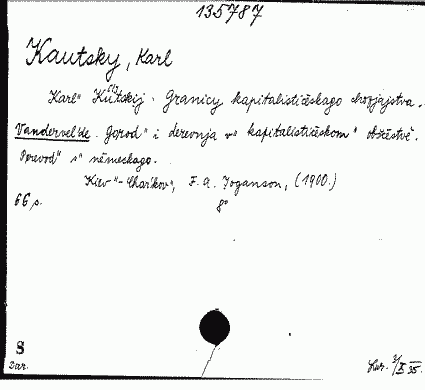 135787
Kautsky, Karl
Karl" Kautskij. Granicy kapitalističeskago chozjajstva.
Vandervel'de. Gorod" i derevnja v" kapitalističeskom" obščestvě.
Perevod" s" německago.
Kiev"-Char'kov", F. A. Joganson, (1900.)
66 s. 8°
S
Dar.